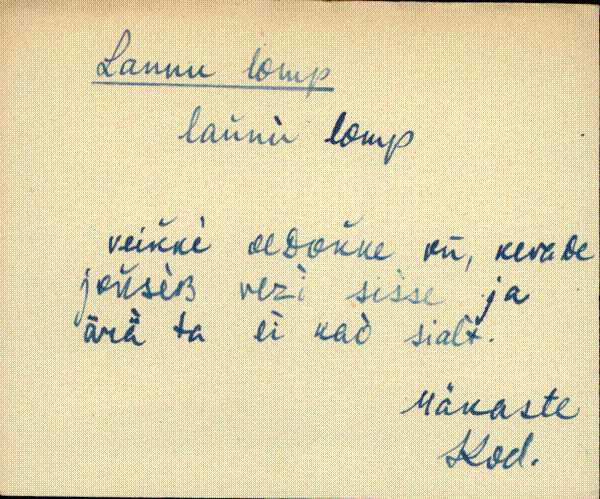 Lannu lomp
lannu lomp
veikkè oedokke on, kevade
joksèʙ vezi sisse ja
ärä ta ei kao sialt.
Mäkaste
Kod.